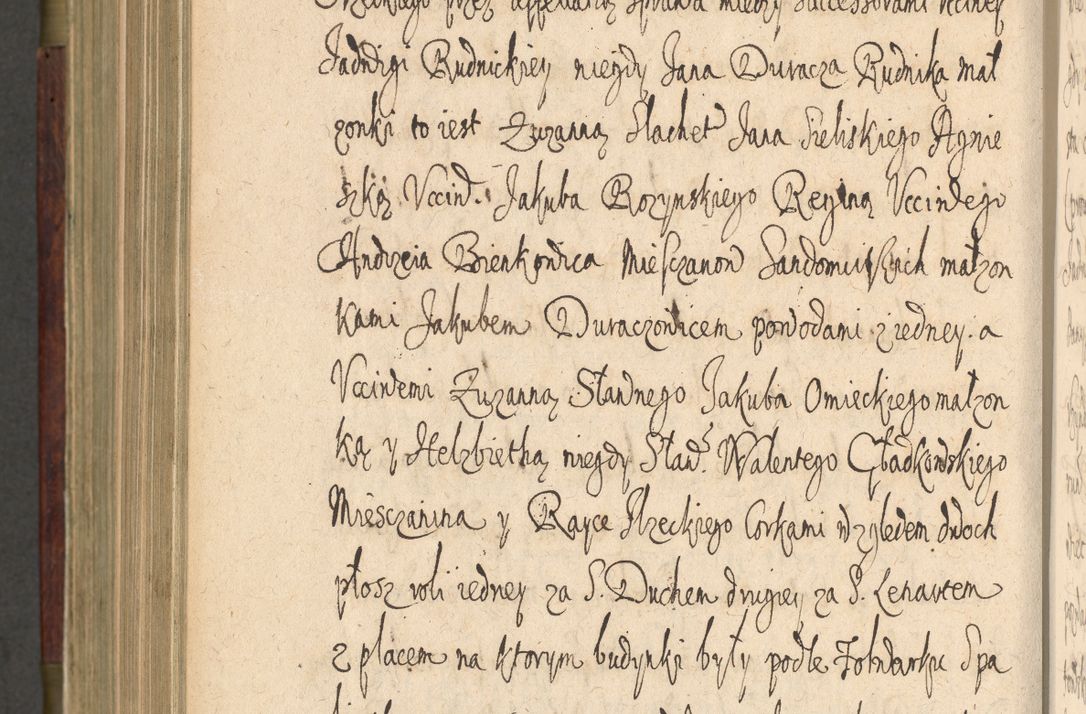 przez appellatią sprawa między successorami ucciwey
Jadwigi Rudnickiey niegdy Jana Duracza Rudnika mał
zonki to iest Zuzanną Slachet Jana Sieliskiego Agnie
szką Ucciw. Jakuba Rozynskiego Reginą Ucciwego
Andrzeia Bienkowica Miesczanow Sandomirskich małzon
kami Jakubem Duraczowicem powodami z iedney. a
Ucciwemi Zuzanną Sławnego Jakuba Omieckiego małzon
ką y Helzbiethą niegdy Sław. Walentego Gładkowskiego
Miesczanina y Rayce Ilzeckiego Corkami względem dwoch
płosz roli iedney za S. Duchem drugiey za S. Lenartem
z placem na ktorym budynki były podle Folwarku Spa